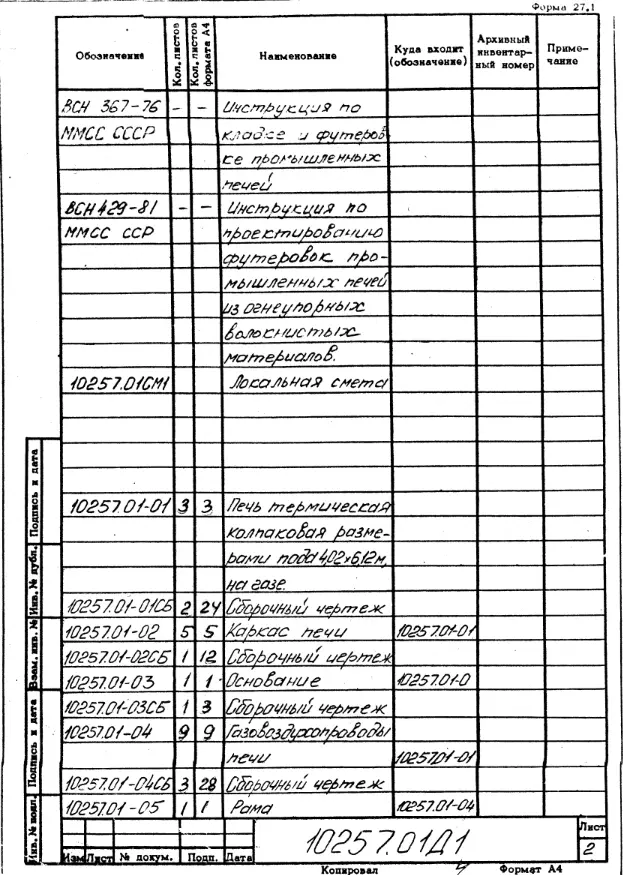 Форма 27.1
Обозначение Кол. листов Кол. листов формата А4 Наименование Куда входит (обозначение) Архивный инвентарный номер Примечание
ВСН 367-76 - - Инструкция по
ММСС СССР кладке и футеров
ке промышленных
печей
ВСН 429-81 - - Инструкция по
ММСС ССР проектированию
футеровок про-
мышленных печей
из огнеупорных
волокнистых
материалов.
10257.01СМ1 Локальная смета
10257.01-01 3 3 Печь термическая
колпаковая разме-
рами пода 4,02х6,12м,
на газе.
10257.01-01СБ 2 24 Сборочный чертеж
10257.01-02 5 5 Каркас печи 10257.01-01
10257.01-02СБ 1 12 Сборочный чертеж
10257.01-03 1 1 Основание 10257.01-0
10257.01-03СБ 1 3 Сборочный чертеж
10257.01-04 9 9 Газовоздухопроводы
печи 10257.01-01
10257.01-04СБ 3 28 Сборочный чертеж
10257.01-05 1 1 Рама 10257.01-04
Подпись и дата
Инв. № дубл.
Взам. инв. №
Подпись и дата
Инв. № подл.
Изм Лист № докум. Подп. Дата
10257.01Д1
Лист
2
Копировал Формат А4